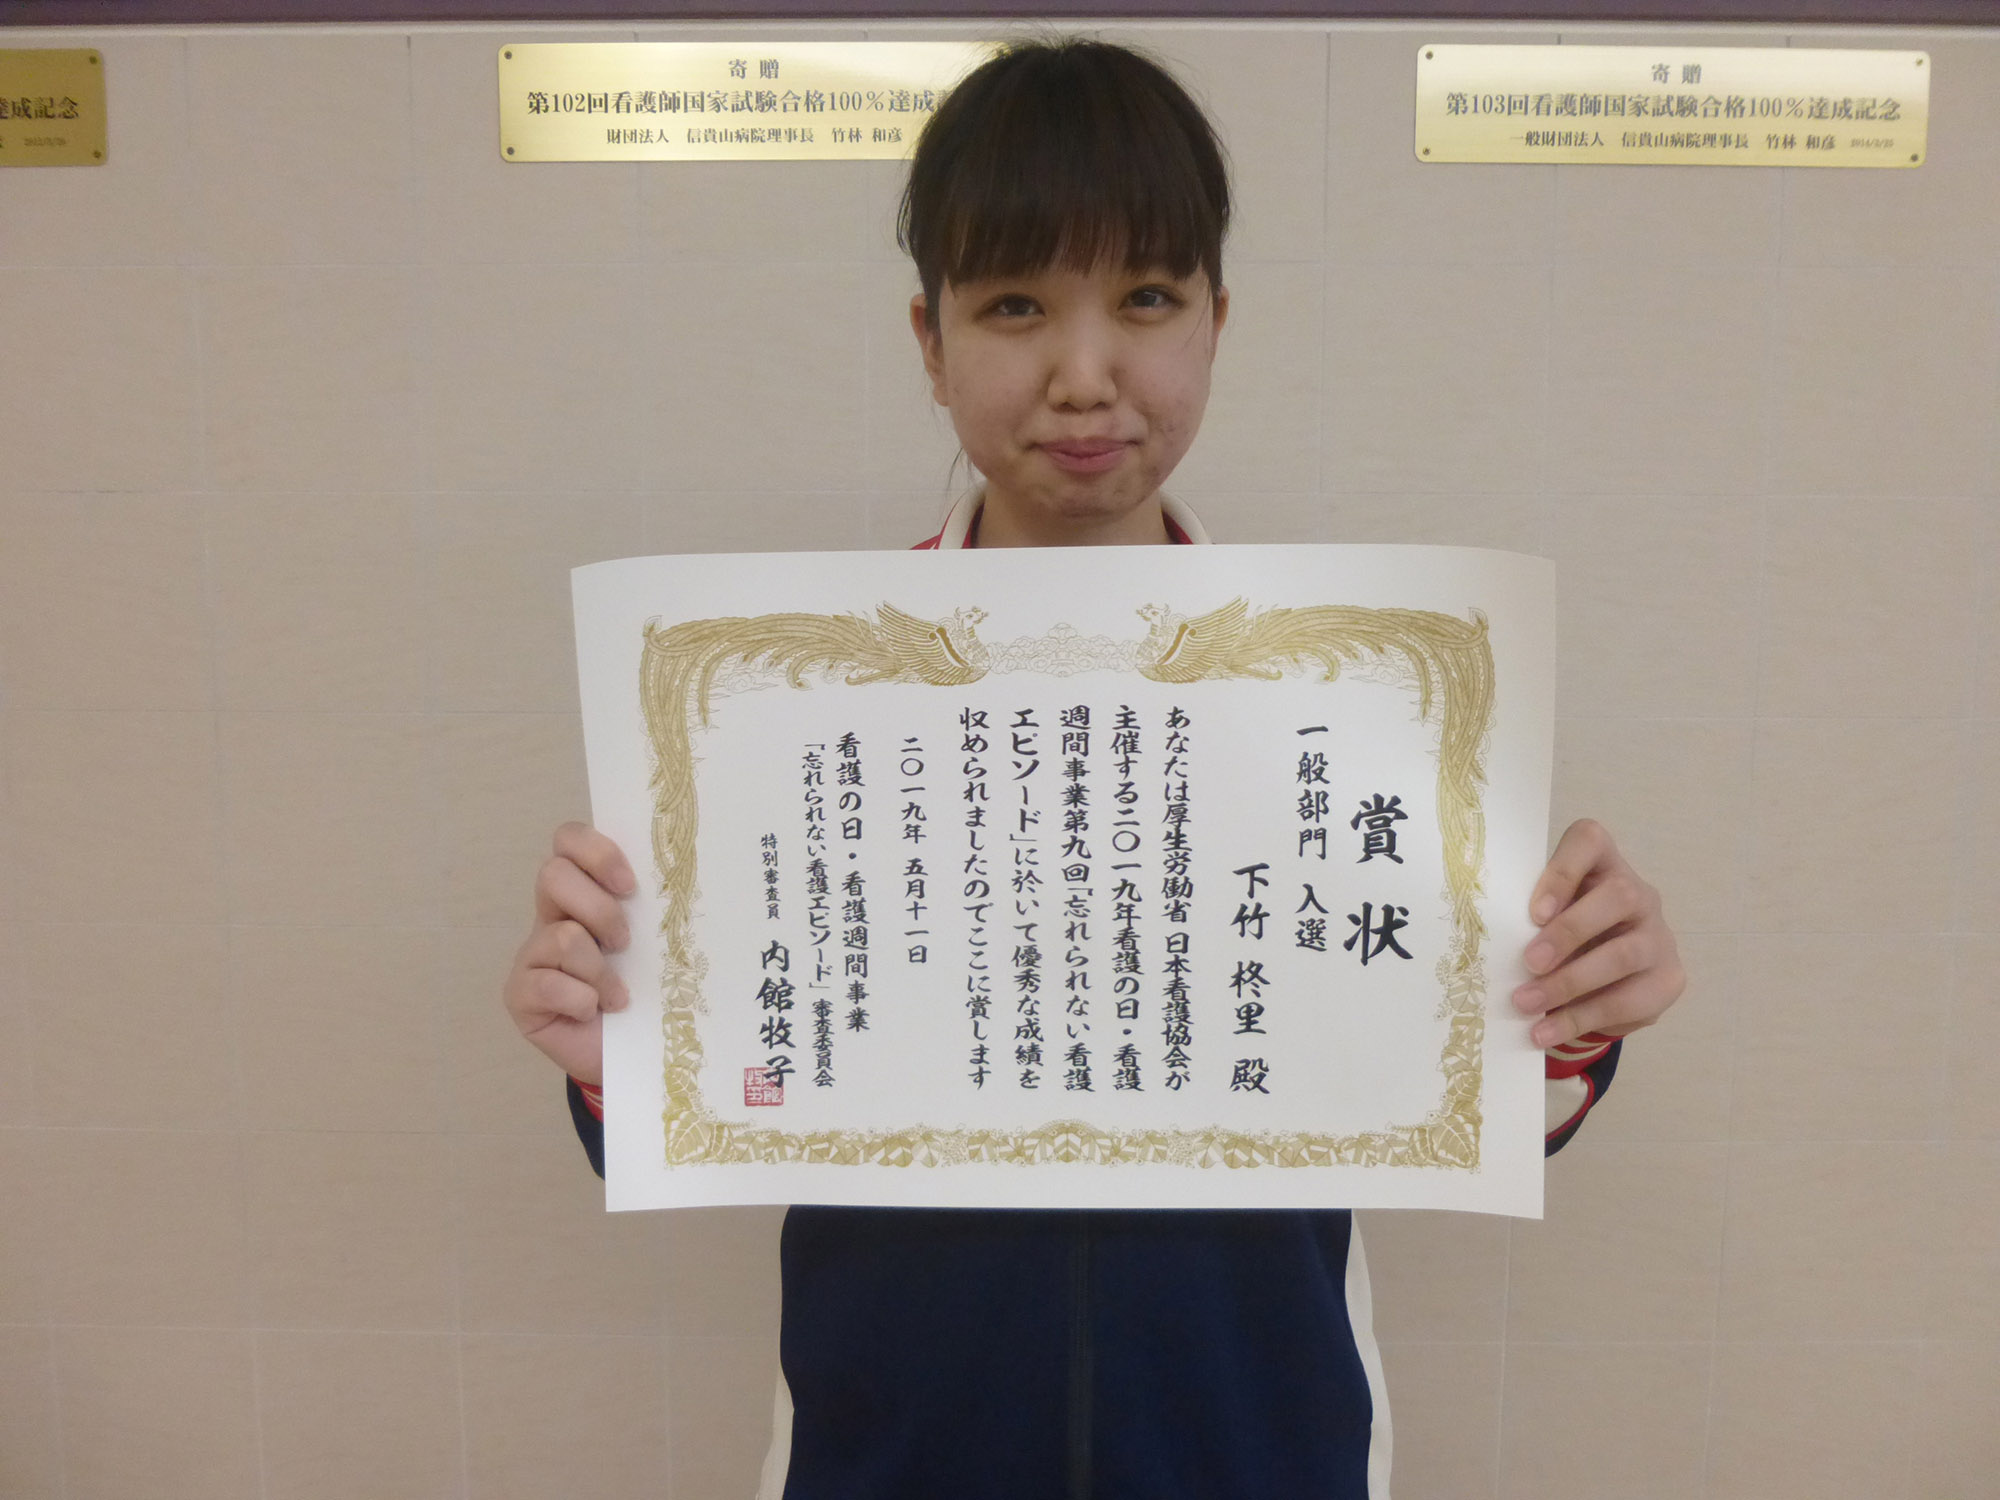 達成記念
2012/3/26
寄 贈
第102回看護師国家試験合格100％達成
財団法人 信貴山病院理事長 竹林 和彦
寄 贈
第103回看護師国家試験合格100％達成記念
一般財団法人 信貴山病院理事長 竹林 和彦 2014/3/25
賞状
一般部門 入選
下竹 柊里 殿
あなたは厚生労働省 日本看護協会が
主催する二〇一九年看護の日・看護
週間事業第九回「忘れられない看護
エピソード」に於いて優秀な成績を
収められましたのでここに賞します
二〇一九年 五月十一日
看護の日・看護週間事業
「忘れられない看護エピソード」審査委員会
特別審査員 内館牧子